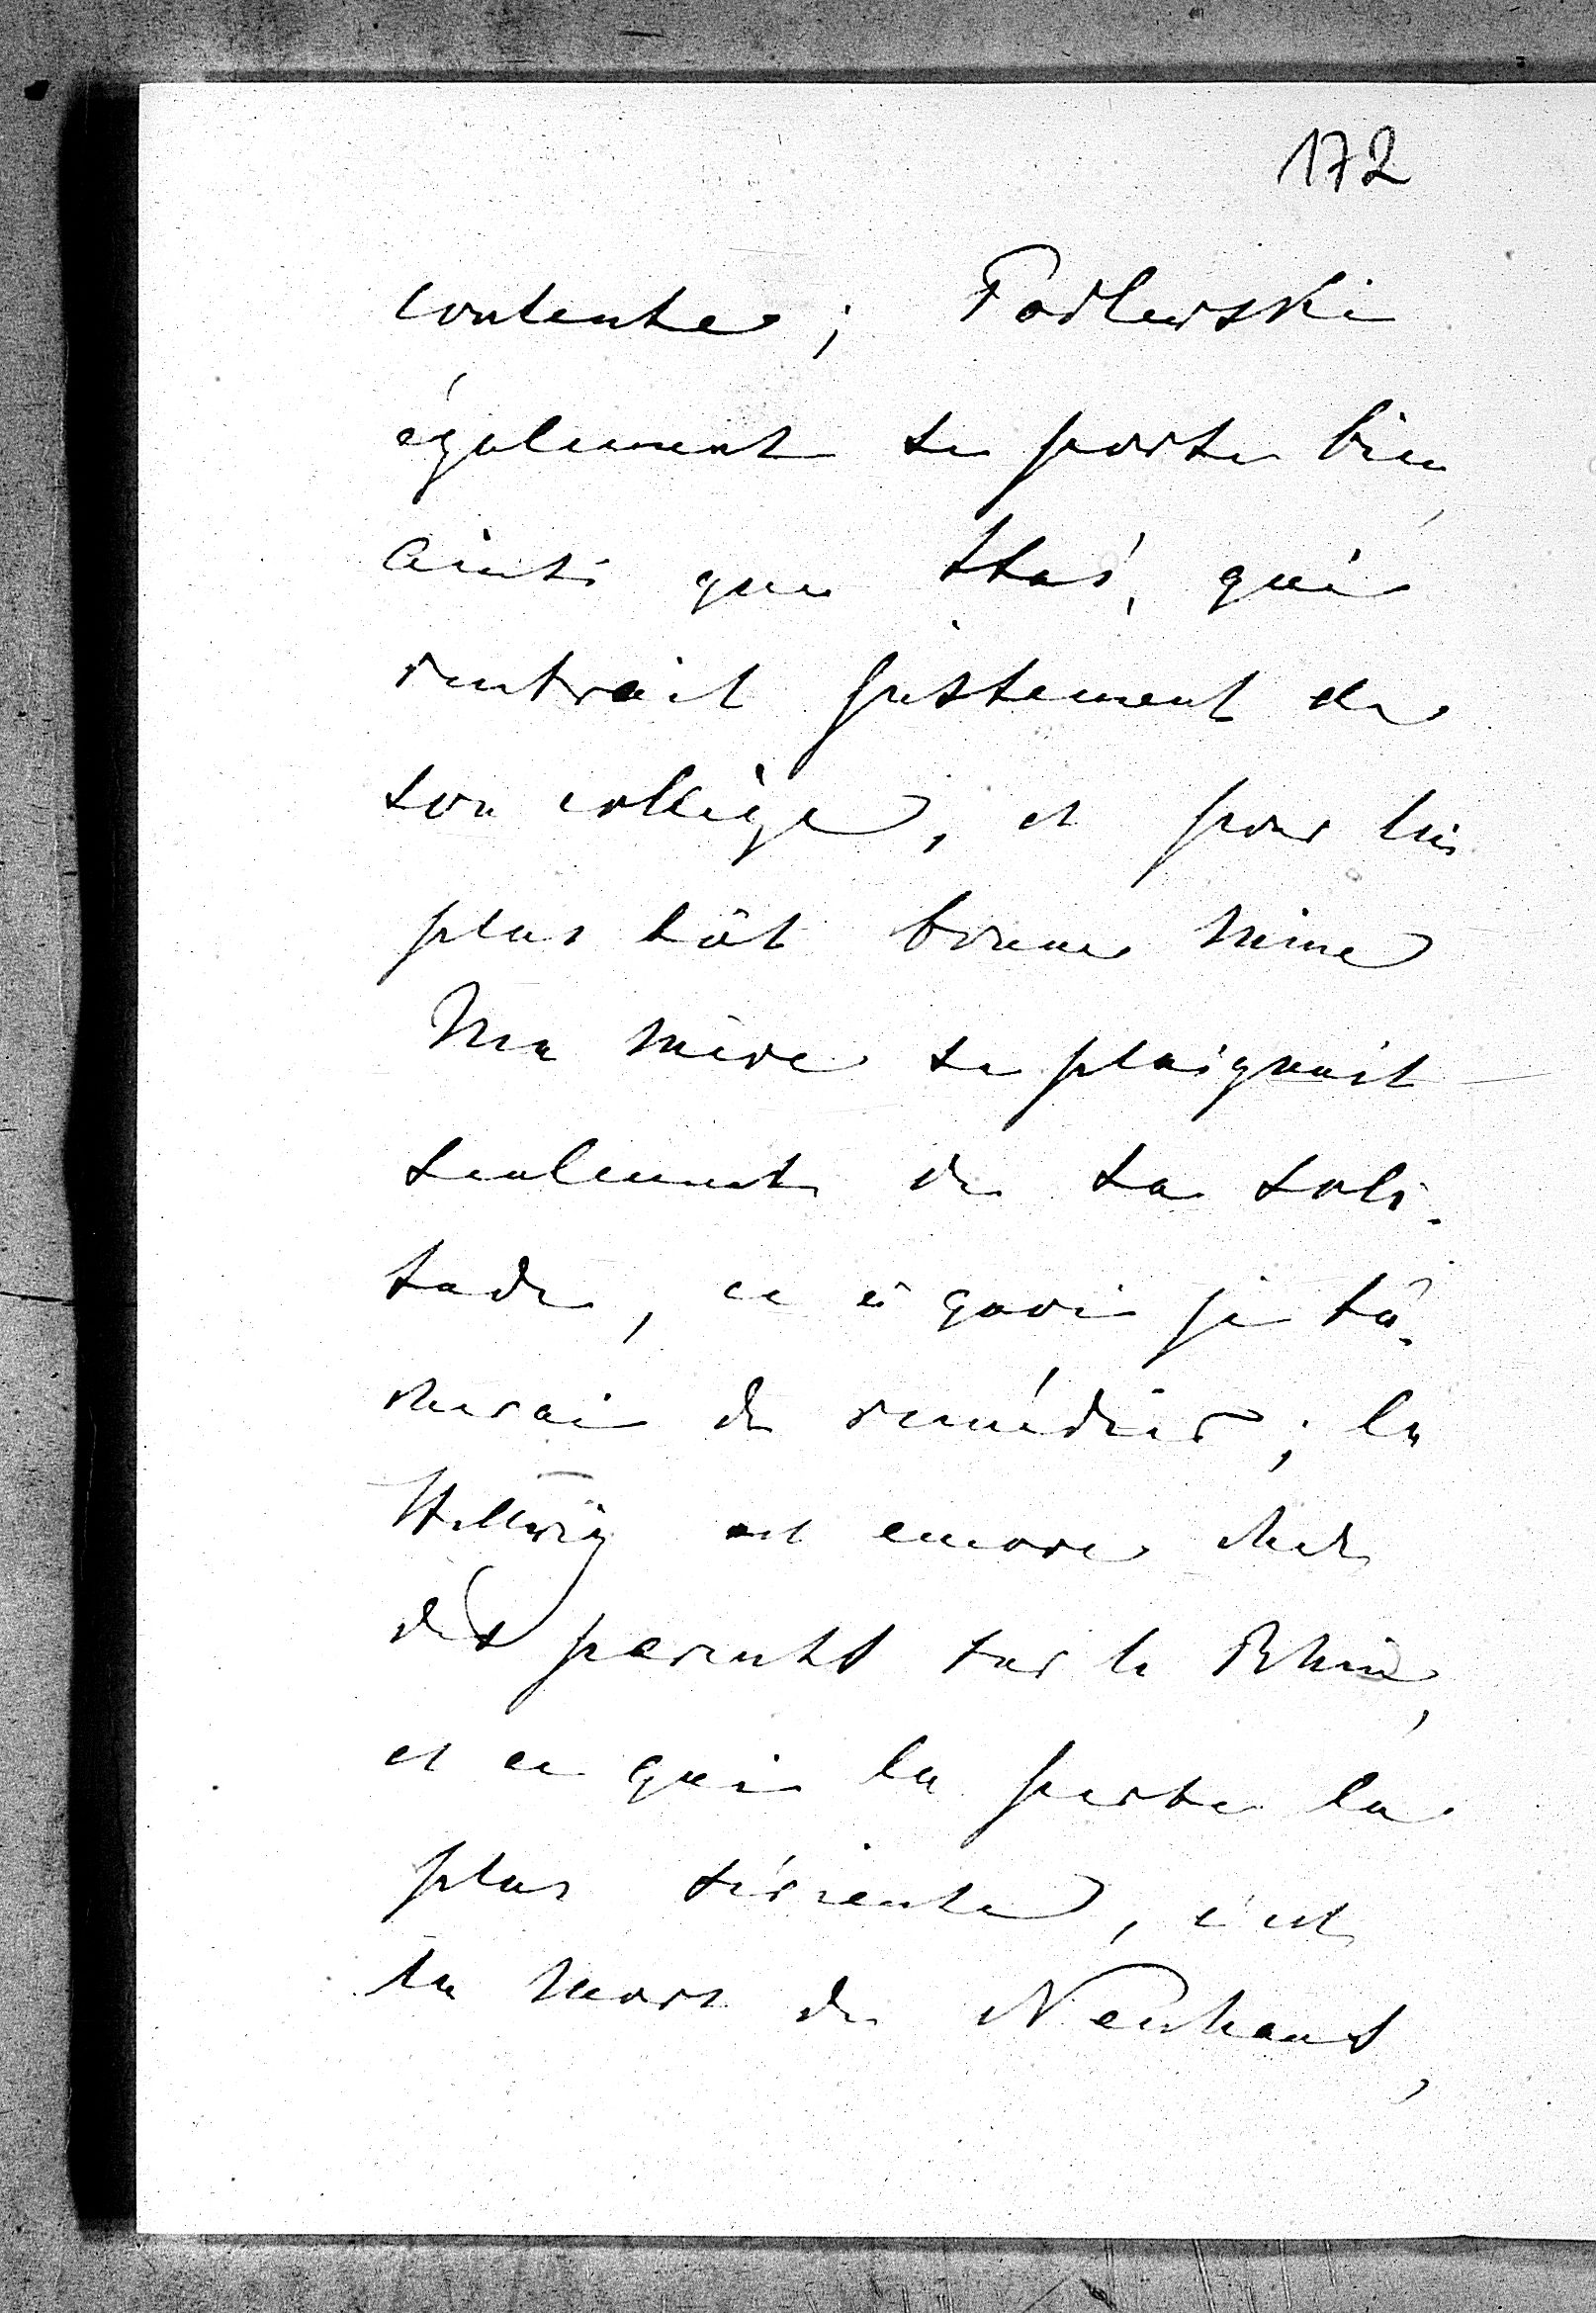 172
contente ; Podlewski
également se porte bien,
ainsi que Staś, qui
rentrait justement de
son collège, et pour lui
plus tôt bonne mine
Ma mère se plaignait
seulement de sa soli-
tude, ce à quoi je tâ-
cherai de remédier ; la
Hellwig est encore chez
des parents sur le Rhin,
et ce qui la perte la
plus sérieuse, c'est
la mort de Neuhaus,